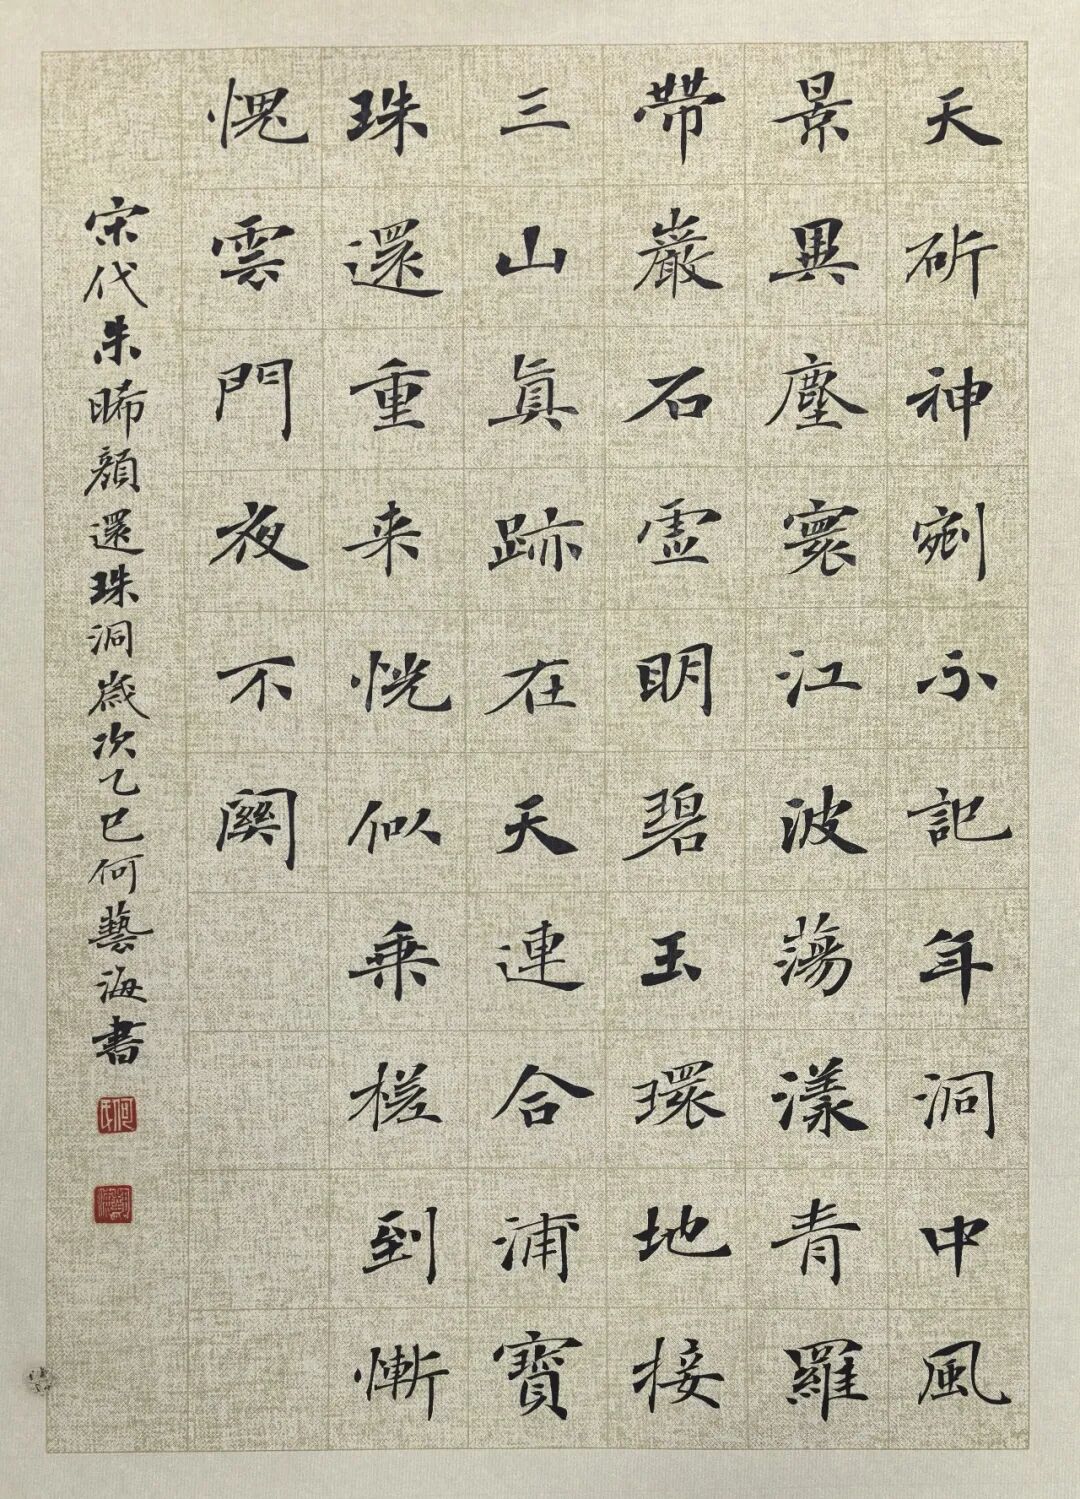 天斫神剜不記年洞中風
景異塵寰江波蕩漾青羅
帶巖石虛明碧玉環地接
三山真跡在天連合浦寶
珠還重来恍似乘槎到慚
愧雲門夜不関
宋代朱晞顏還珠洞歲次乙巳何藝海書